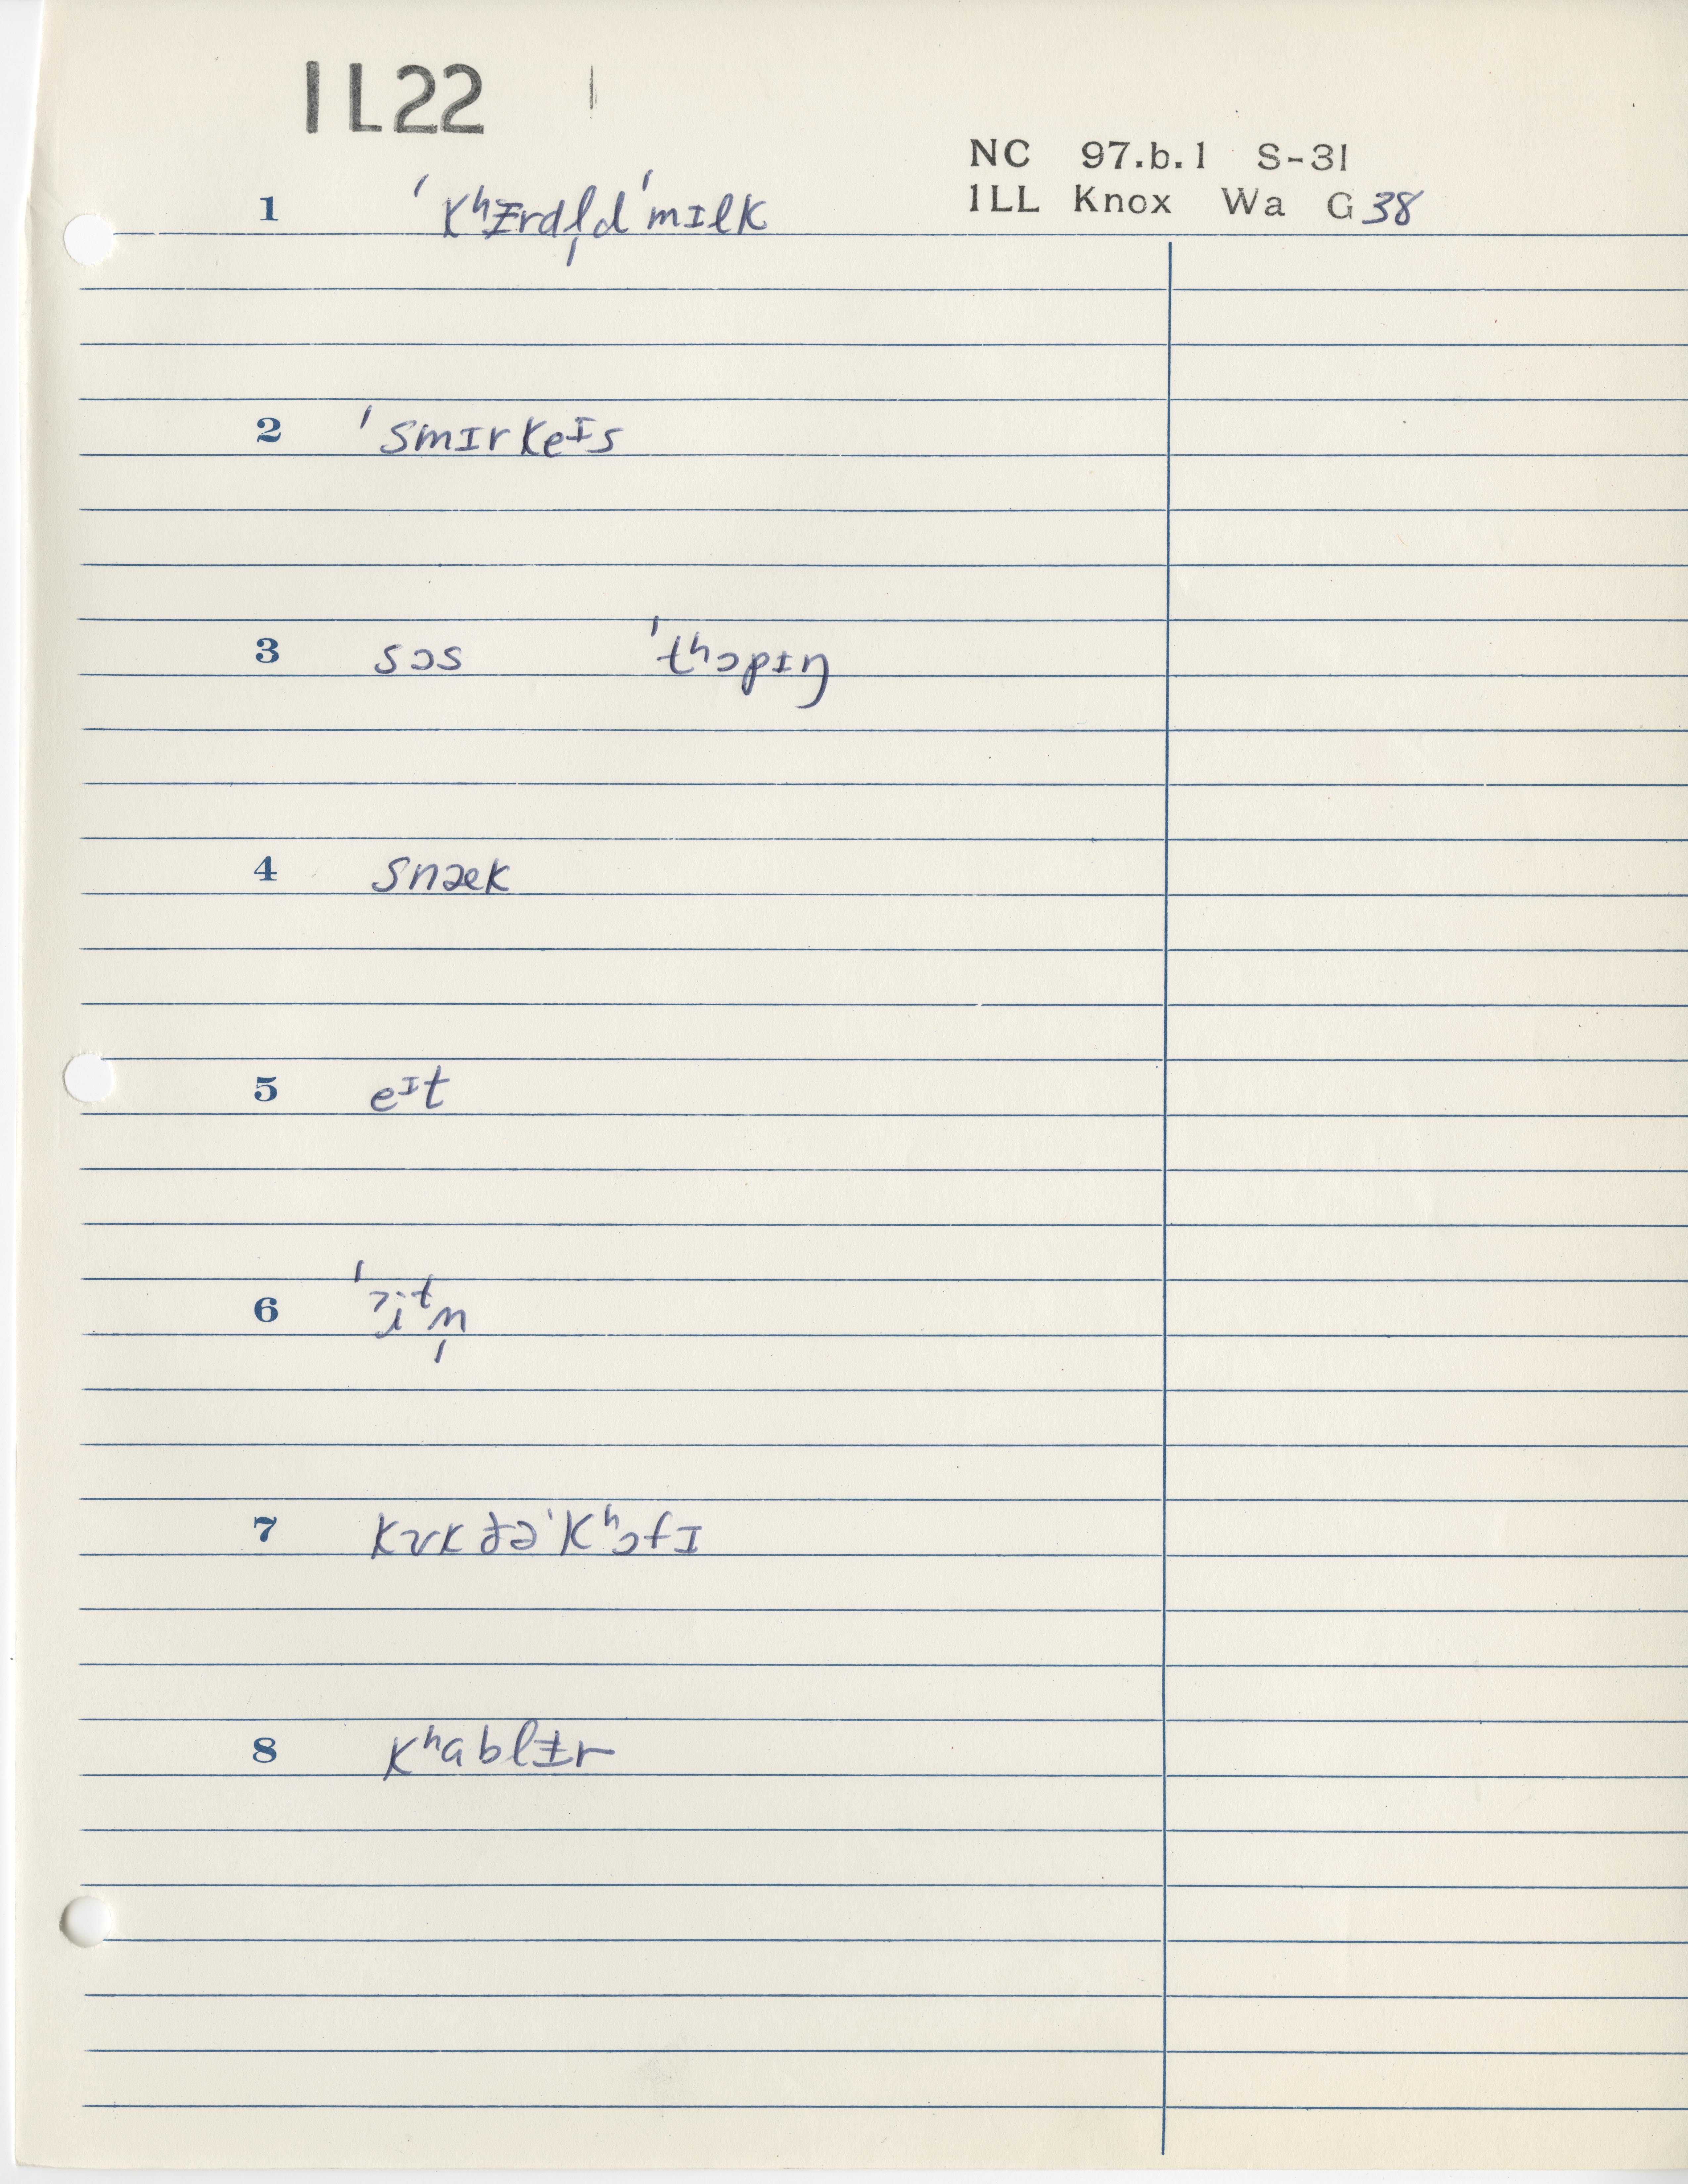 1L22
NC 97.b.1 S-31
1LL Knox Wa G38
1 ˈkʰᵻrdl̩dˈmɪlk
2 ˈsmɪrkeᶦs
3 sɔs ˈtʰɔpɪŋ
4 snæk
5 eᶦt
6
7 kʊkðəˈkʰɔfɪ
8 kʰablᵻr